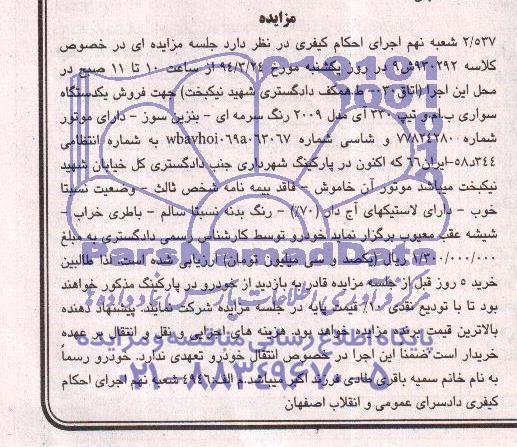 مزایده
۲/۵۳۷ شعبه نهم اجرای احکام کیفری در نظر دارد جلسه مزایده ای در خصوص
کلاسه ۹۳۰۲۹۲ش۹ در روز یکشنبه مورخ ۹۴/۳/۲۴ از ساعت ۱۰ تا ۱۱ صبح در
محل این اجرا (اتاق۳۰- ط.همکف دادگستری شهید نیکبخت) جهت فروش یکدستگاه
سواری ب.ام.و تیپ ۳۳۰ آی مدل ۲۰۰۹ رنگ سرمه ای - بنزین سوز - دارای موتور
شماره ۷۷۸۳۴۲۸۰ و شاسی شماره wbavhoi۰۶۹a۰۶۳۰۶۷ به شماره انتظامی
۳۴۴د۵۸-ایران۶۶ که اکنون در پارکینگ شهرداری جنب دادگستری کل خیابان شهید
نیکبخت میباشد موتور آن خاموش - فاقد بیمه نامه شخص ثالث - وضعیت نسبتا
خوب - دارای لاستیکهای آج دار (۷۰٪) - رنگ بدنه نسبتا سالم - باطری خراب -
شیشه عقب معیوب برگزار نماید خودرو توسط کارشناس رسمی دادگستری به مبلغ
۱/۳۰۰/۰۰۰/۰۰۰ ریال (یکصد و سی میلیون تومان) ارزیابی شده است لذا طالبین
خرید ۵ روز قبل از جلسه مزایده قادر به بازدید از خودرو در پارکینگ مذکور خواهند
بود تا با تودیع نقدی ۱۰٪ قیمت پایه در جلسه مزایده شرکت نمایند. پیشنهاد دهنده
بالاترین قیمت برنده مزایده خواهد بود. هزینه های اجرایی و نقل و انتقال بر عهده
خریدار است ضمنا این اجرا در خصوص انتقال خودرو تعهدی ندارد. خودرو رسماً
به نام خانم سمیه باقری طادی فرزند اکبر میباشد.م الف:۴۹۴۶ شعبه نهم اجرای احکام
کیفری دادسرای عمومی و انقلاب اصفهان
ParsNamadData
مرکز فرآوری اطلاعات پارس نماد داده ها
پایگاه اطلاع رسانی مناقصه و مزایده
۰۲۱-۸۸۳۴۹۶۷۰-۵